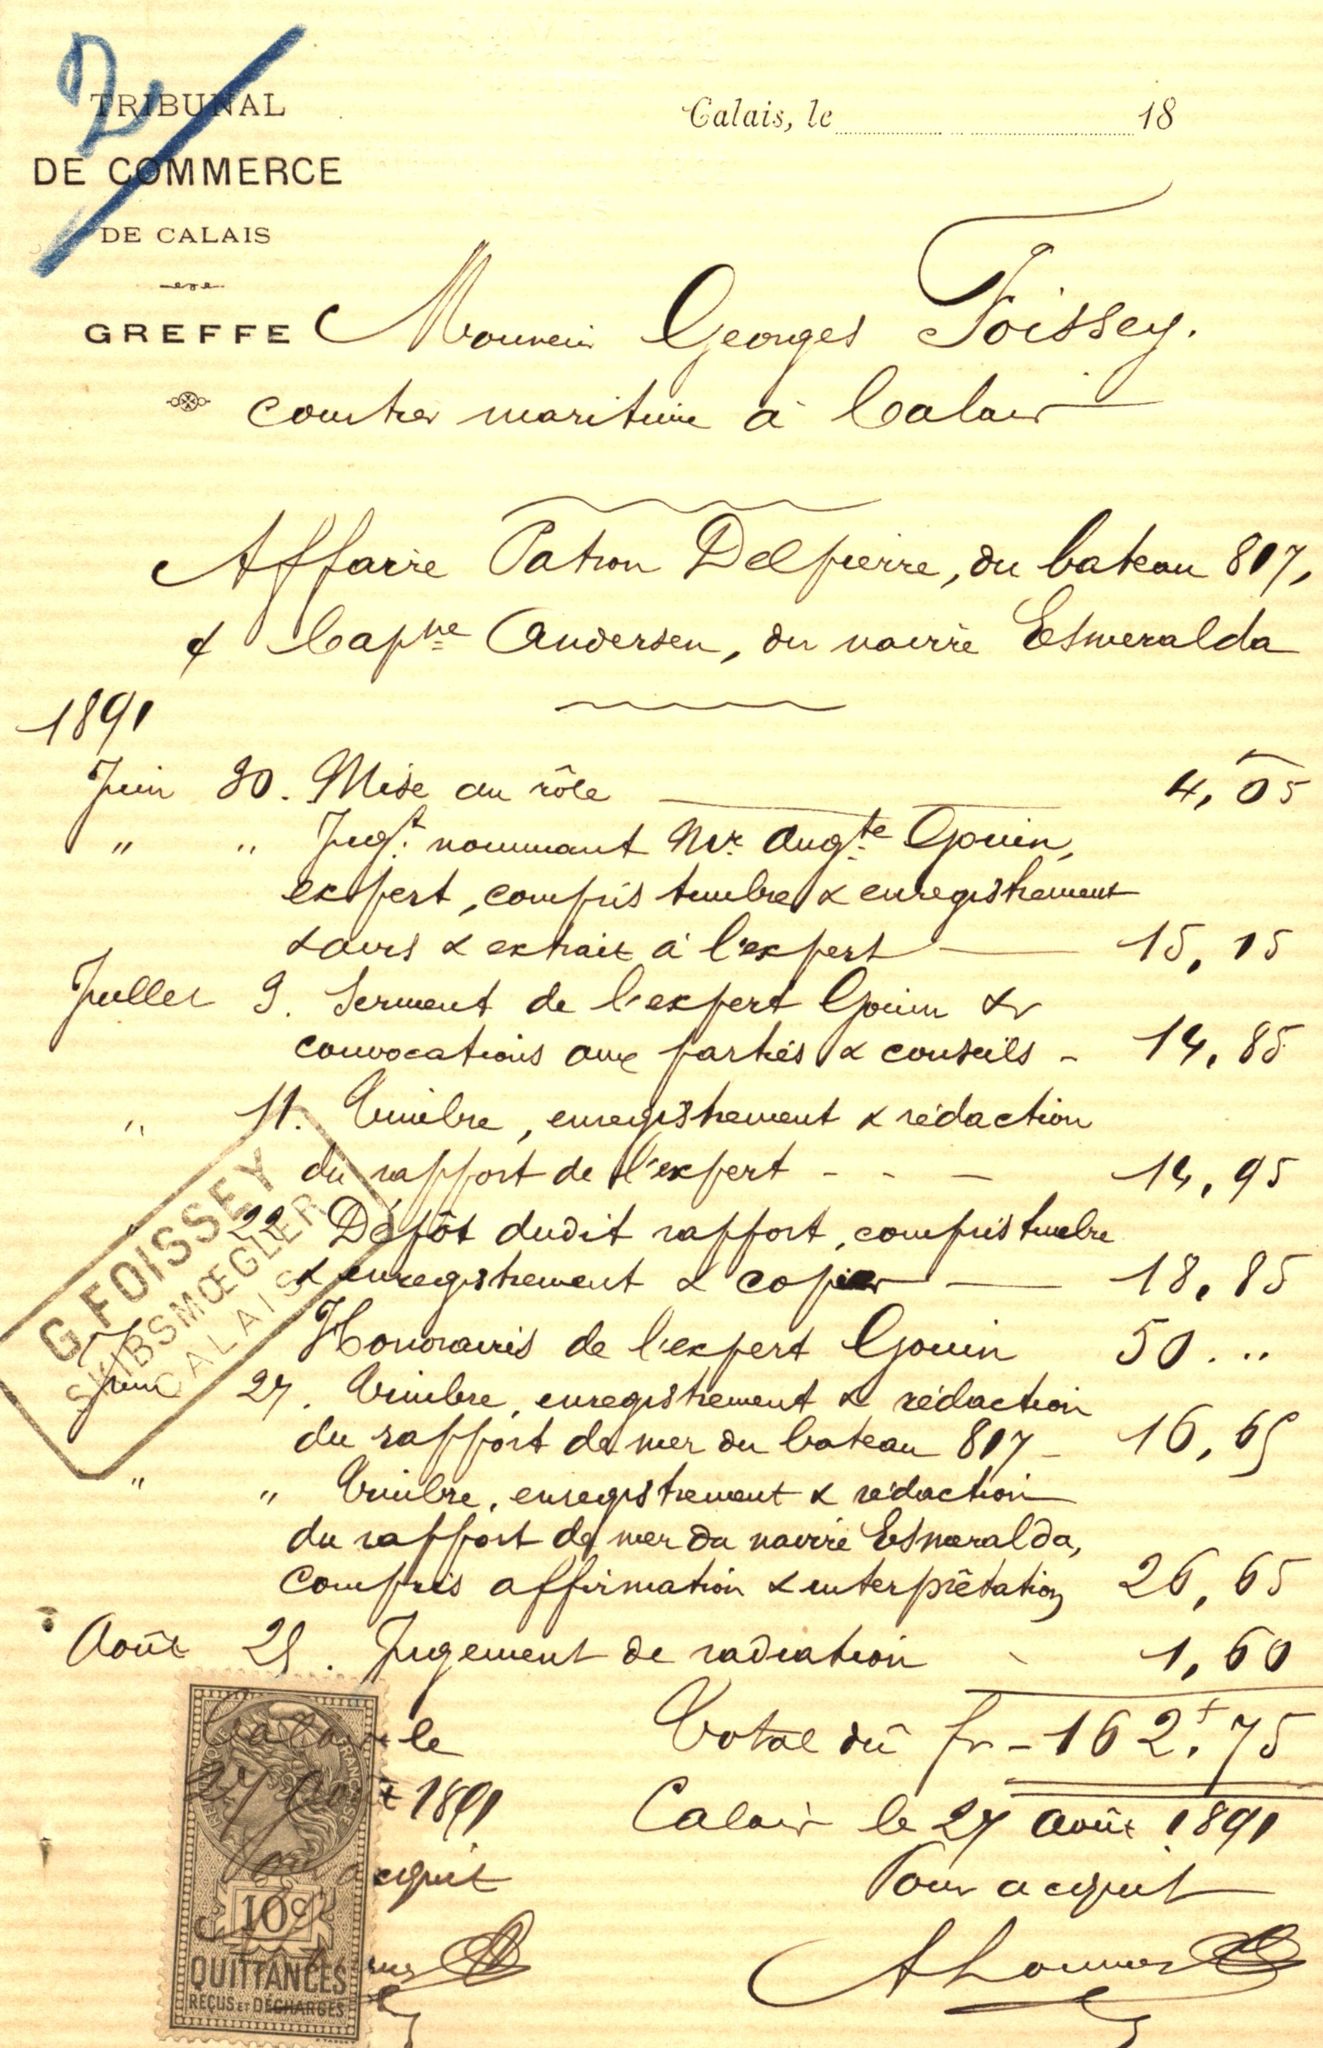 2
TRIBUNAL
DE COMMERCE
DE CALAIS
GREFFE
Calais, le 18
Monsieur Georges Foissey.
courtier maritime à Calais
Affaire Patron Delpierre, du bateau 817,
& Capne Andersen, du navire Esmeralda
1891
Juin 30. Mise au rôle 4,05
" " Jugt. nommant Mr. Augte Gouin,
expert, compris timbre & enregistrement
& avis & extrait à l'expert 15,15
Juillet 9. Serment de l'expert Gouin &
convocations aux parties & conseils - 14,85
" 11. Timbre, enregistrement & rédaction
du rapport de l'expert - - - 14,95
" 22 Dépôt dudit rapport, compris timbre
& enregistrement & copie 18,85
Honoraires de l'expert Gouin 50 . "
Juin 27. Timbre, enregistrement & rédaction
du rapport de mer du bateau 817 - 16,65
" " Timbre, enregistrement & rédaction
du rapport de mer du navire Esmeralda,
compris affirmation & interprétation 26,65
Août 25. Jugement de radiation 1,60
Total dû fr - 162.75
Calais le 27 août 1891
Pour acquit
G. FOISSEY
SKIBSMŒGLER
CALAIS
Calais le
27 Août 1891
Pour acquit
REPUBLIQUE FRANÇAISE
10c
QUITTANCES
REÇUS ET DÉCHARGES